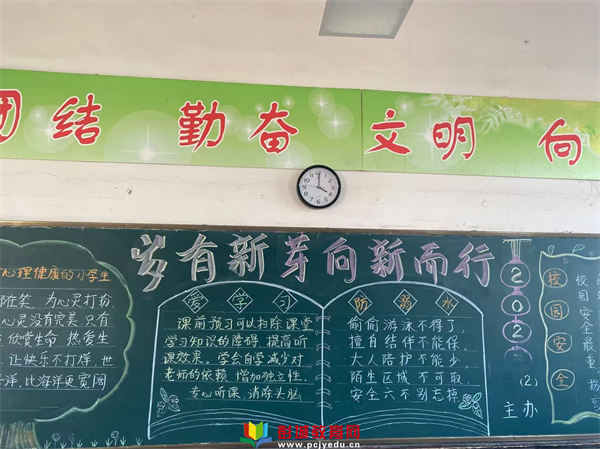 团结 勤奋 文明 向
岁有新芽向新而行
心理健康的小学生
在笑 为心灵打扮
心灵没有完美 只有
欣赏生命.热爱生
让快乐不打烊,世
洋,比海洋更宽阔
爱学习
课前预习可以扫除课堂
学习知识的障碍 提高听
课效果。学会自学减少对
老师的依赖 增加独立性.
专心听课,清除头脑
防溺水
偷偷游泳不得了,
擅自结伴不能保
大人陪护不能少.
陌生区域 不可取.
安全六不别忘掉
202
(2)
主办
校园安全
校园
安全
最重
彭课教育网
www.pcjyedu.cn